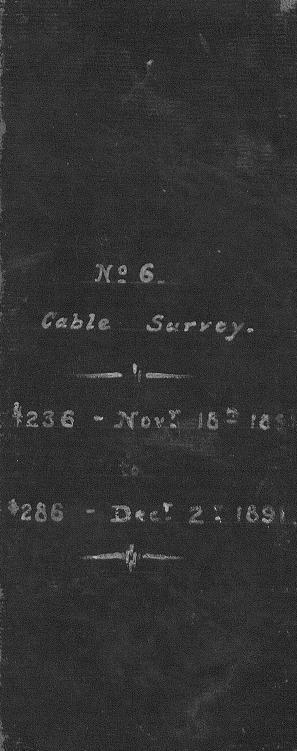 Nº 6.
Cable Survey.
#236 - Novr 18th 189
to
#286 - Decr 2nd 1891.